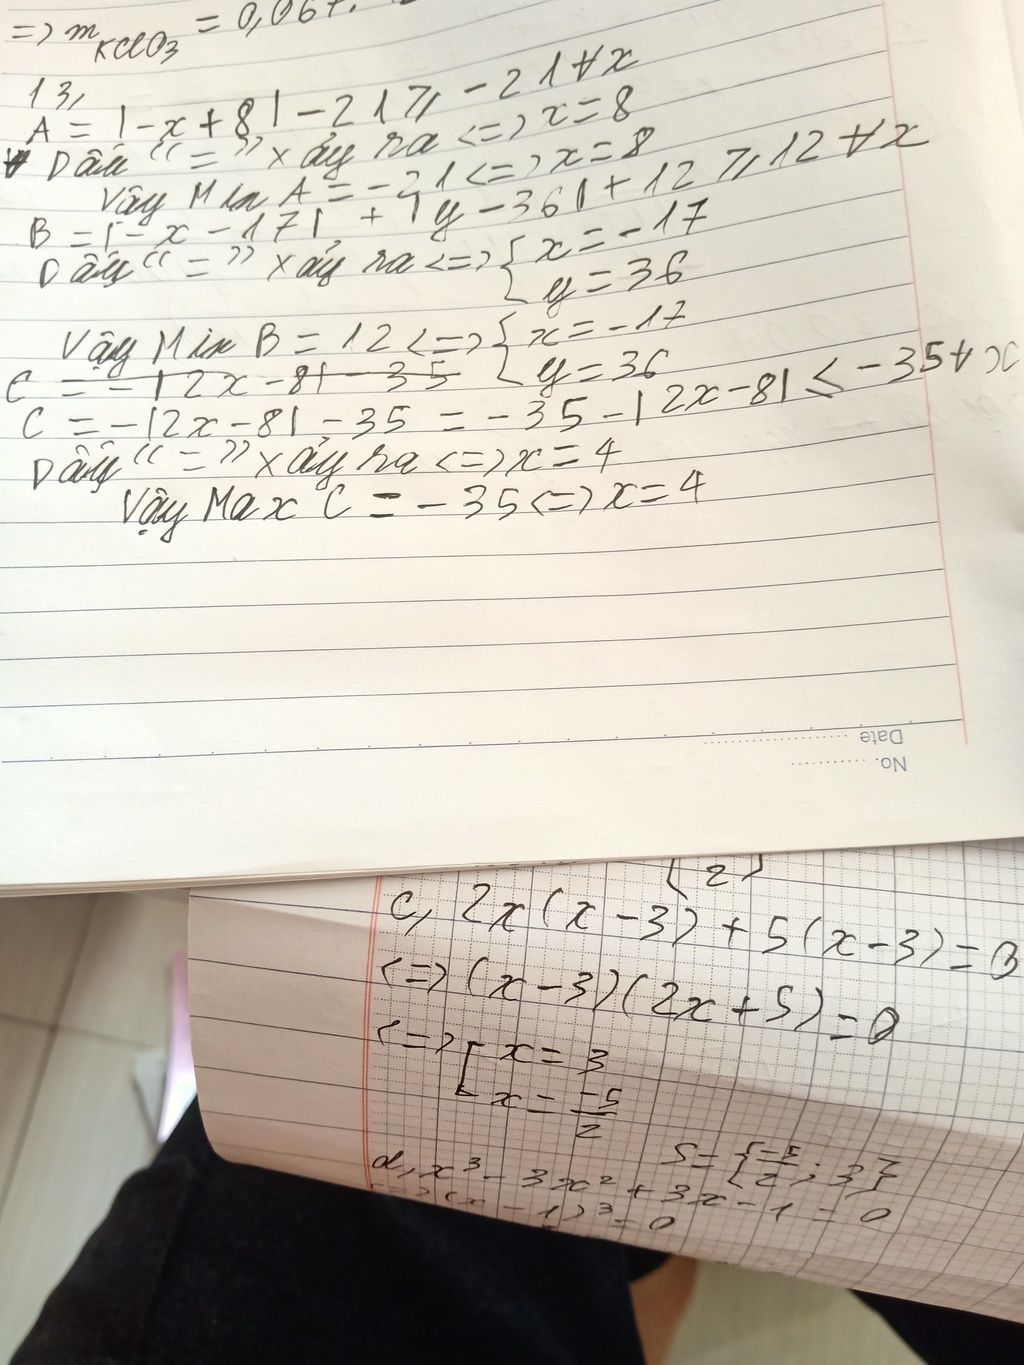 => m KClO3 = 0,067.
13,
A = |-x+8| - 21 ≥ -21 ∀x
Dấu "=" xảy ra <=> x=8
Vậy Min A = -21 <=> x=8
B = |-x-17| + |y-36| + 12 ≥ 12 ∀x
Dấu "=" xảy ra <=> { x=-17
y=36
Vậy Min B = 12 <=> { x=-17
y=36
C = -|2x-8| - 35
C = -|2x-8| - 35 = -35 - |2x-8| ≤ -35 ∀x
Dấu "=" xảy ra <=> x=4
Vậy Max C = -35 <=> x=4
Date
No.
2
c, 2x(x-3) + 5(x-3) = 0
<=> (x-3)(2x+5) = 0
<=> [ x = 3
x = -5/2
S = {-5/2; 3}
d, x³ - 3x² + 3x - 1 = 0
<=> (x-1)³ = 0